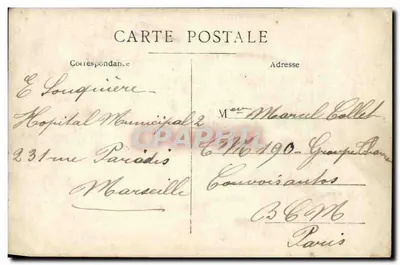 CARTE POSTALE
Correspondance
Adresse
E Souquière
Hopital Municipal 2
231 rue Paradis
Marseille
Meur Marcel Collet
TM 190 - Groupe
Convois autos
BCM
Paris